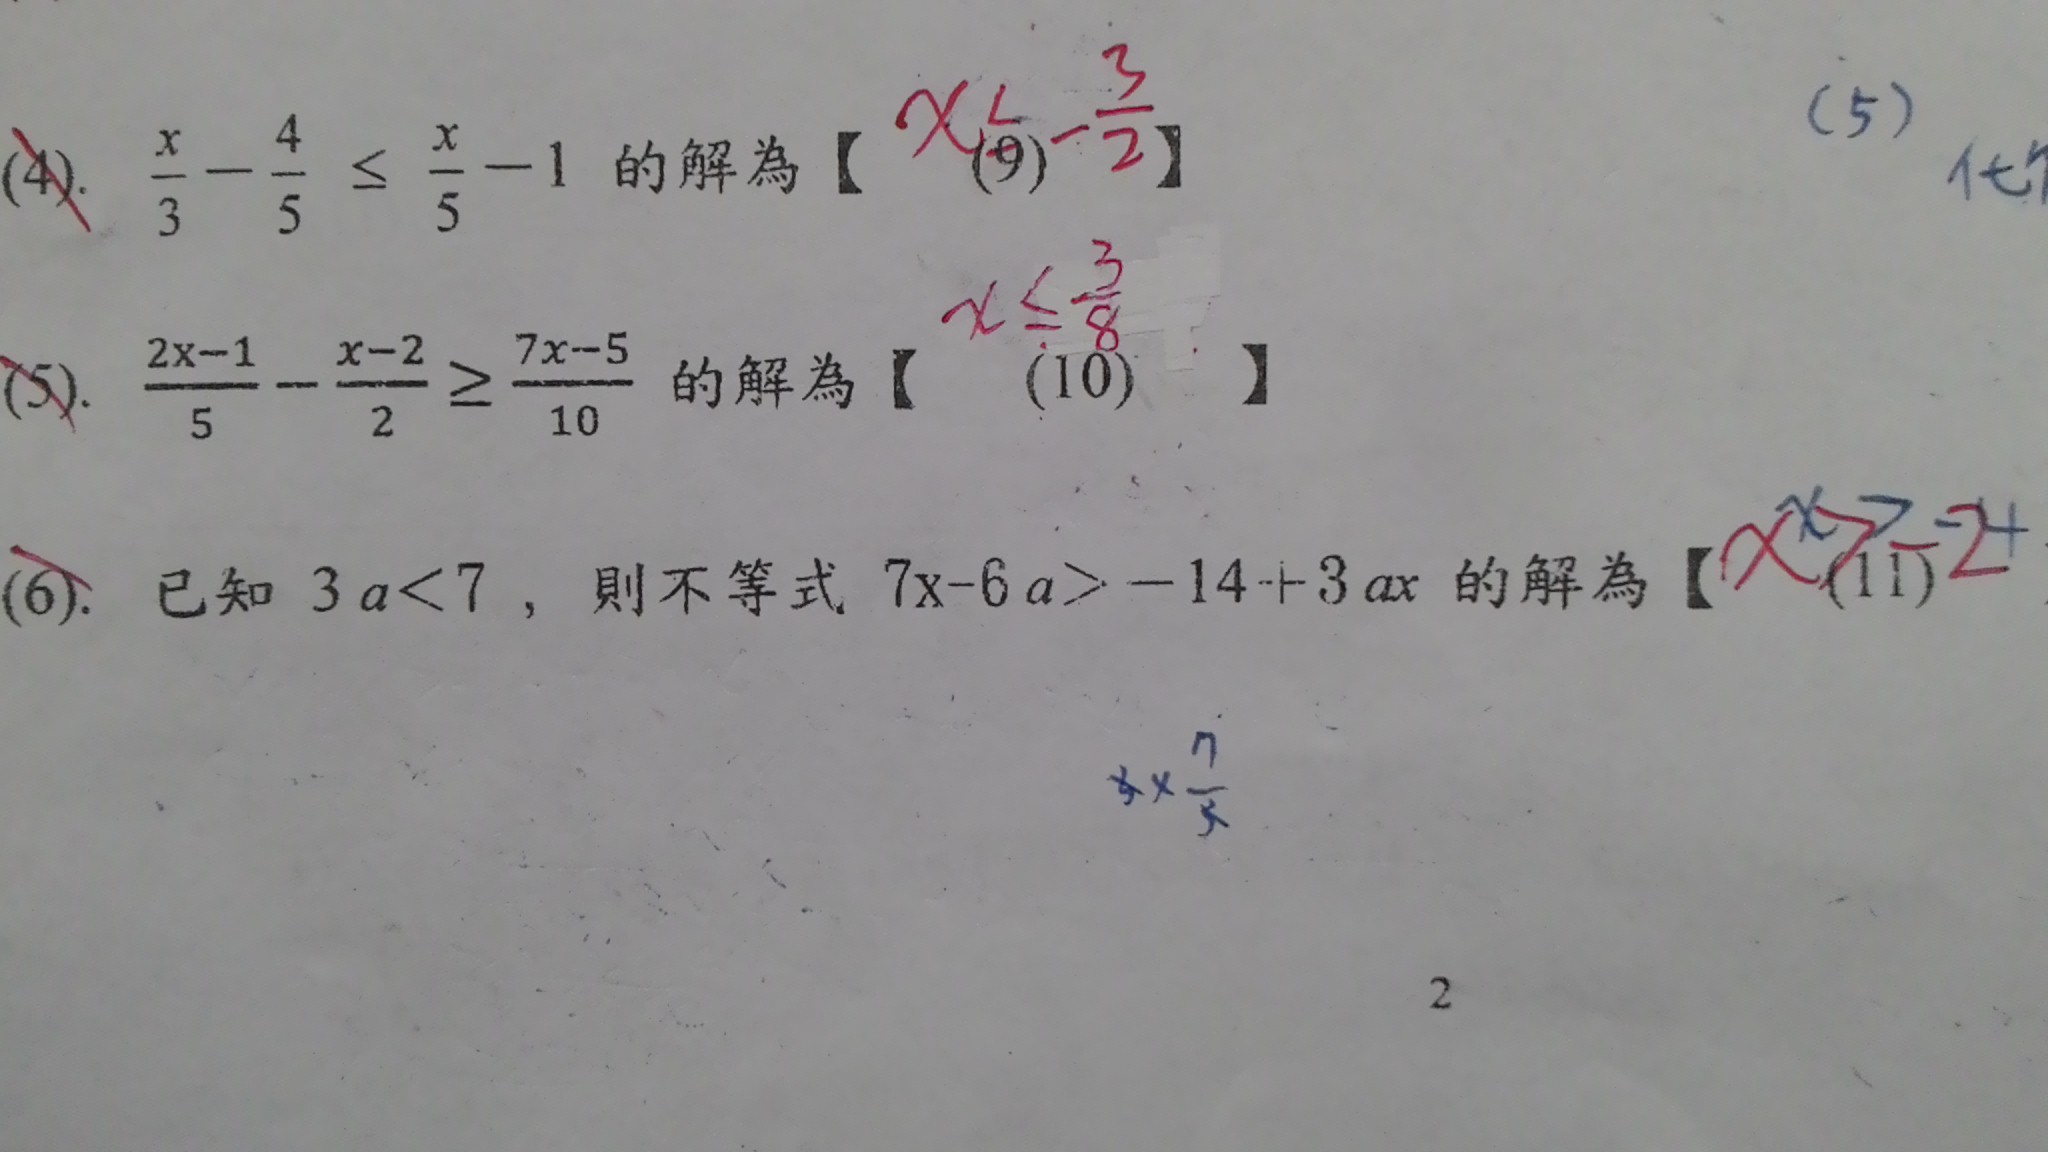 (4). x/3 − 4/5 ≤ x/5 − 1 的解為【 (9) 】 x ≤ −3/2
(5)
(5). 2x−1/5 − x−2/2 ≥ 7x−5/10 的解為【 (10) 】 x ≤ 3/8
(6). 已知 3a<7 , 則不等式 7x-6a>−14+3ax 的解為【 (11) x>−2
x > -2+
x 7/3
2